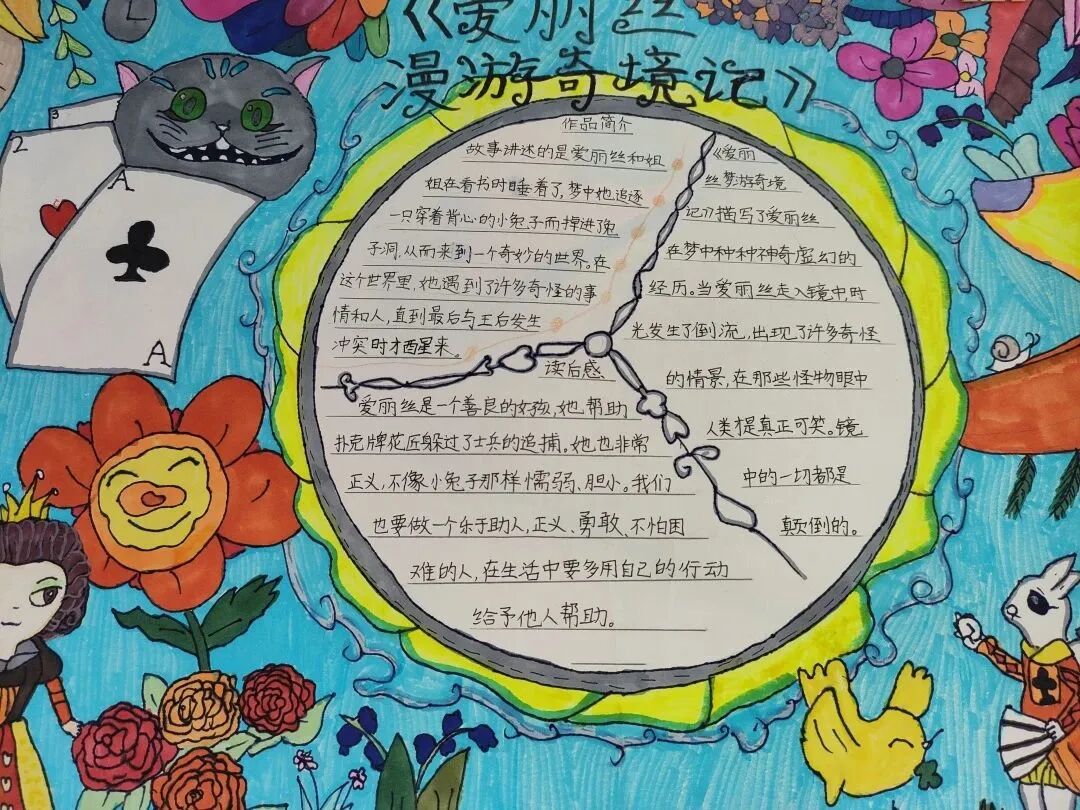 《爱丽丝
漫游奇境记》
2
3
A
A
作品简介
故事讲述的是爱丽丝和姐
姐在看书时睡着了,梦中她追逐
一只穿着背心的小兔子而掉进了兔
子洞,从而来到一个奇妙的世界。在
这个世界里,她遇到了许多奇怪的事
情和人,直到最后与王后发生
冲突时才醒来。
《爱丽
丝梦游奇境
记》描写了爱丽丝
在梦中种种神奇虚幻的
经历。当爱丽丝走入镜中时
光发生了倒流,出现了许多奇怪
的情景,在那些怪物眼中
人类才是真正可笑。镜
中的一切都是
颠倒的。
读后感
爱丽丝是一个善良的女孩,她帮助
扑克牌花匠躲过了士兵的追捕。她也非常
正义,不像小兔子那样懦弱、胆小。我们
也要做一个乐于助人,正义、勇敢、不怕困
难的人,在生活中要多用自己的行动
给予他人帮助。